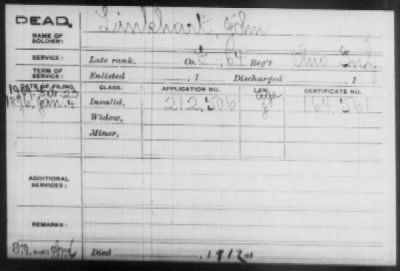 DEAD.
NAME OF SOLDIER: Linkhart, John
SERVICE: Late rank, Co. E, 64 Reg't Ohio Inf.
TERM OF SERVICE: Enlisted , 1 Discharged , 1
DATE OF FILING. CLASS. APPLICATION NO. LAW. CERTIFICATE NO.
1876, Jan. 4 Invalid, 212,506 164,561
Widow,
Minor,
ADDITIONAL SERVICES:
REMARKS:
Died , 1912 at